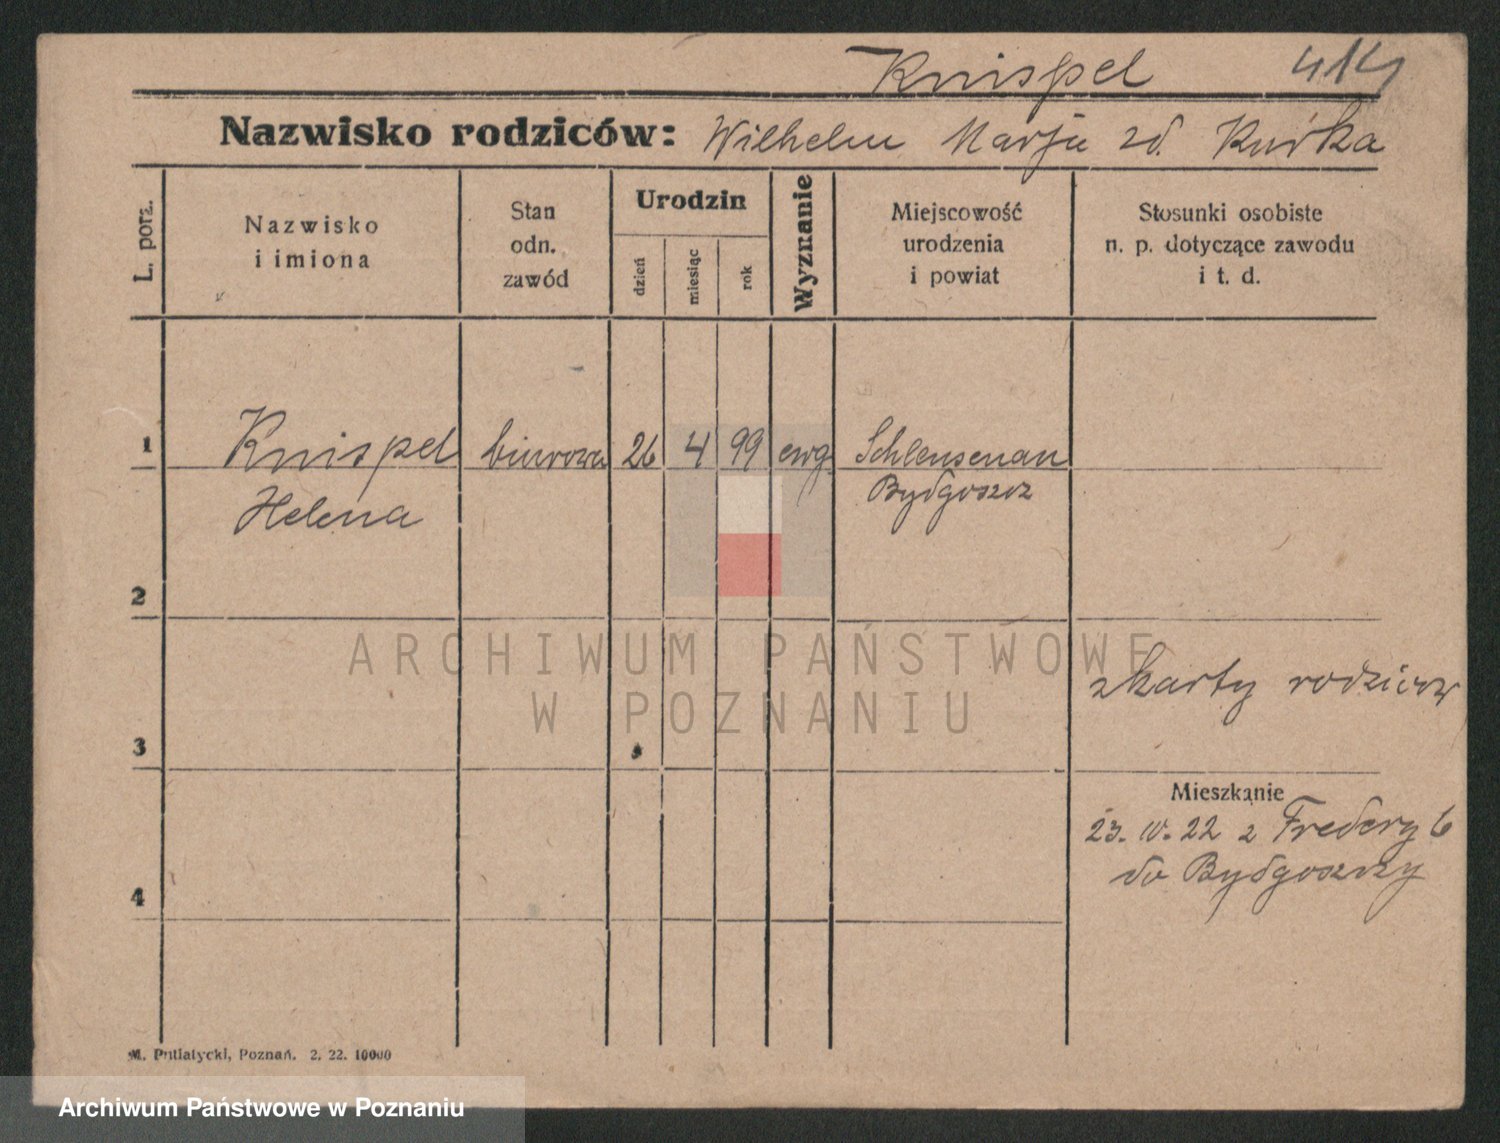 Knispel 414
Nazwisko rodziców: Wilhelm Marja zd. Kurka
L. porz.
Nazwisko
i imiona
Stan
odn.
zawód
Urodzin
dzień
miesiąc
rok
Wyznanie
Miejscowość
urodzenia
i powiat
Stosunki osobiste
n. p. dotyczące zawodu
i t. d.
1 Knispel biurowa 26 4 99 ewg Schleusenau
Helena Bydgoszcz
2
ARCHIWUM PAŃSTWOWE
W POZNANIU
z karty rodziców
3
Mieszkanie
23. IV. 22 z Fredery 6
do Bydgoszczy
4
M. Putiatycki, Poznań. 2. 22. 10000
Archiwum Państwowe w Poznaniu